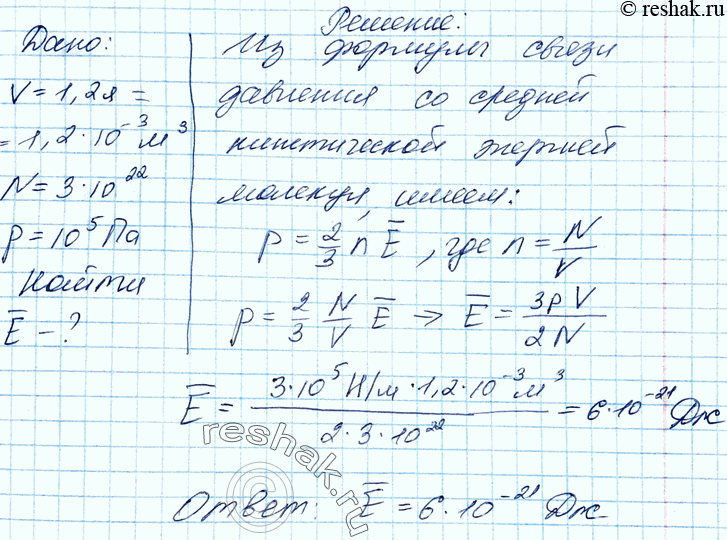 © reshak.ru
Дано:
V = 1,2л =
= 1,2·10⁻³ м³
N = 3·10²²
p = 10⁵ Па
Найти
E̅ - ?
Решение:
Из формулы связи
давления со средней
кинетической энергией
молекул, имеем:
p = 2/3 n E̅, где n = N/V
p = 2/3 N/V E̅ ⇒ E̅ = 3pV/2N
E̅ = 3·10⁵ Н/м · 1,2·10⁻³ м³ / 2·3·10²² = 6·10⁻²¹ Дж
reshak.ru
©
Ответ: E̅ = 6·10⁻²¹ Дж